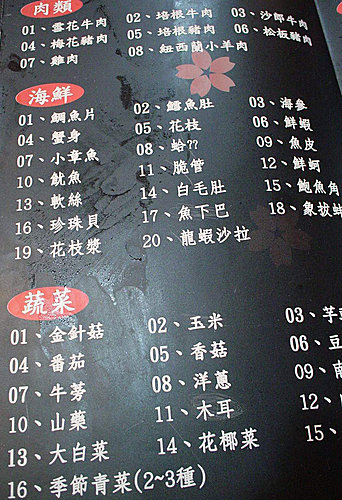 肉類
01、雪花牛肉 02、培根牛肉 03、沙郎牛肉
04、梅花豬肉 05、培根豬肉 06、松板豬肉
07、雞肉 08、紐西蘭小羊肉
海鮮
01、鯛魚片 02、鱈魚肚 03、海參
04、蟹身 05、花枝 06、鮮蝦
07、小章魚 08、蛤?? 09、魚皮
10、魷魚 11、脆管 12、鮮蚵
13、軟絲 14、白毛肚 15、鮑魚角
16、珍珠貝 17、魚下巴 18、象拔蚌
19、花枝漿 20、龍蝦沙拉
蔬菜
01、金針菇 02、玉米 03、芋
04、番茄 05、香菇 06、豆
07、牛蒡 08、洋蔥 09、
10、山藥 11、木耳 12、
13、大白菜 14、花椰菜 15、
16、季節青菜(2~3種)